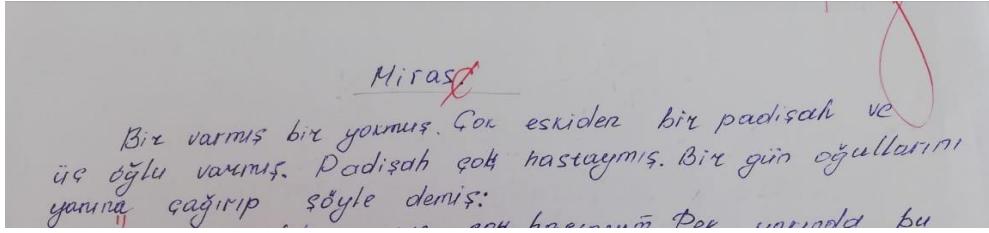 Miras.
Bir varmış bir yokmuş. Çok eskiden bir padişah ve
üç oğlu varmış. Padişah çok hastaymış. Bir gün oğullarını
yanına çağırıp şöyle demiş:
bu